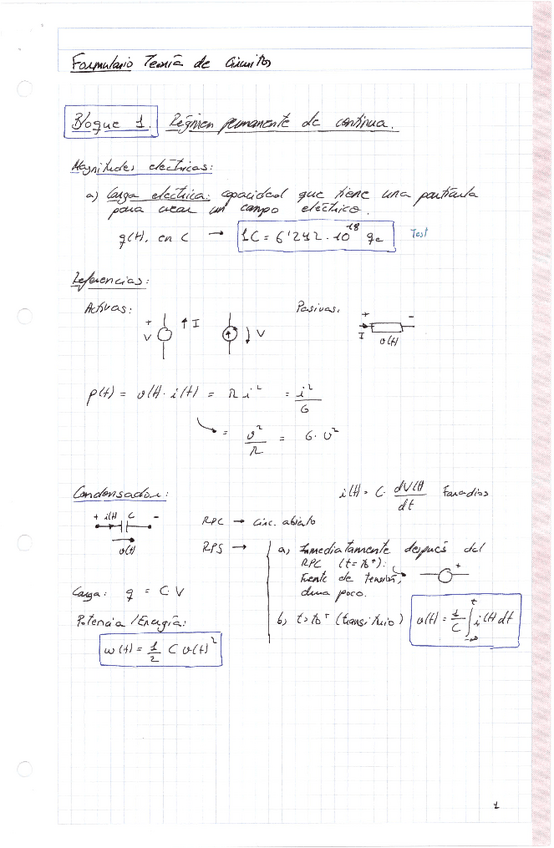 Formulario Teoría de Circuitos
Bloque 1. Régimen permanente de continua.
Magnitudes eléctricas:
a) Carga eléctrica: capacidad que tiene una partícula
para crear un campo eléctrico.
q(t), en C → 1C = 6'242 · 10^18 qe Test
Referencias:
Activas: Pasivas:
+ V ↑ I ↓ V + - I v(t)
p(t) = v(t) · i(t) = R i² = i²/G
= v²/R = G · v²
Condensador: i(t) = C · dV(t)/dt Faradios
+ i(t) C - v(t)
RPC → Circ. abierto
RPS → a) Inmediatamente después del
RPC (t = t0⁺):
Fuente de tensión, +
dura poco.
Carga: q = C V
Potencia / Energía: b) t > t0⁺ (transitorio) v(t) = 1/C ∫_{-∞}^{t} i(t) dt
w(t) = 1/2 C v(t)²
1